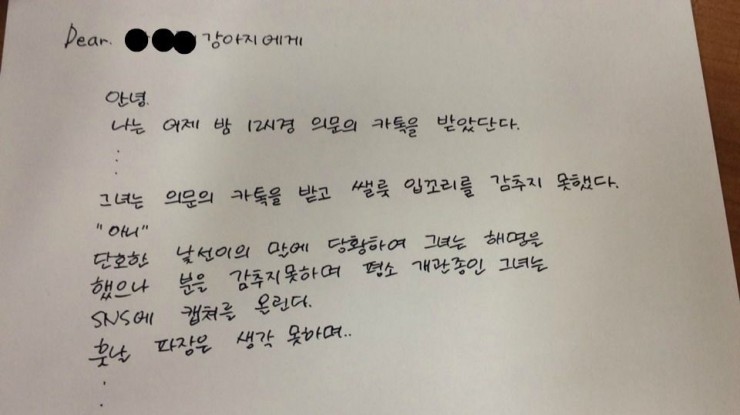 Dear. 강아지에게
안녕.
나는 어제 밤 12시경 의문의 카톡을 받았단다.
.
.
.
그녀는 의문의 카톡을 받고 쌜룩 입꼬리를 감추지 못했다.
"아니"
단호한 낯선이의 말에 당황하여 그녀는 해명을
했으나 분을 감추지못하며 평소 개관종인 그녀는
SNS에 캡쳐를 올린다.
훗날 파장은 생각 못하며..
.
.